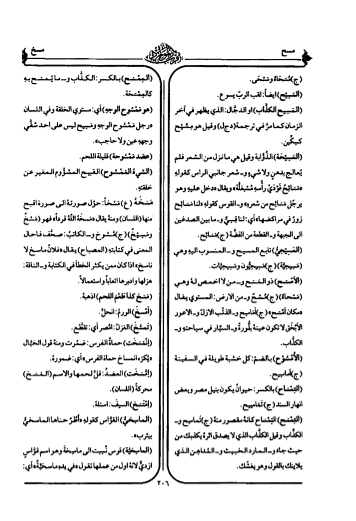 مسح
مسخ
(ج) مُسَحَاءُ ومَسْحَى.
(المَسِيْح) ايضاً: لقب الربّ يسوع.
(المَسِيح الكذّاب) او الدجّال: الذي يظهر في آخر
الزمان كما مرّ في ترجمة (دجل) وقيل هو بمَسّيح
كسِكّين.
(المَسِيْحَة) الذُّؤابة وقيل هي ما نزل من الشعر فلم
يُعالَج بدهن ولا شيءٍ و‍ـ شعر جانبي الراس كقولهِ
يرجّل مسائح من شعرهِ و‍ـ القوس كقولهِ «لنا مسائح
زورٌ في مراكضها» أي: لنا قِسيٌّ و‍ـ ما بين الصدغين
الى الجبهة و‍ـ القطعة من الفضّة (ج) مَسَائِح.
(المَسِيْحِيّ) تابع المسيح و‍ـ المنسوب اليهِ وهي
مَسِيحِيَّة (ج) مَسِيحِيُّون ومَسِيحِيَّات.
(الأَمْسَح) ذو المَسَح و‍ـ من لا اخمص لهُ وهي
مَسْحَاءُ (ج) مُسْح و‍ـ من الارض: المستوي يقال
«مكان أمْسَح» (ج) أَمَاسِح و‍ـ الذئب الازلّ و‍ـ الاعور
الأَبْخَق لا تكون عينهُ بلّورةً و‍ـ السَيّار في سياحتهِ و‍ـ
الكذّاب.
بالضمّ: كل خشبة طويلة في السفينة
(ج) أماسيح.
(التِمْسَاح) بالكسر: حيوانٌ يكون بنيل مصر وبعض
انهار السند (ج) تَمَاسِيح.
(التِمْسَح) التِمْساح كانّهُ مقصور منهُ (ج) تَمَاسِح و‍ـ
الكذّاب وقيل الكذّاب الذي لا يصدق اثرهُ يكذبك من
حيث جاء و‍ـ المارد الخبيث و‍ـ المُداهِن الذي
يلاينك بالقول وهو يغشّك.
بالكسر: الكذّاب و‍ـ ما يُمْسَح بهِ
كالمِمْسَحَة.
(هو مَمْسُوح الوجهِ) أي: مستوي الخلقة وفي اللسان
«رجل ممسُوح الوجه ومَسِيح ليس على احد شقَّي
وجههِ عين ولا حاجب».
(عضد مَمْسُوحة) قليلة اللحم.
(الشيءُ المَمْسُوح) القبيح المشؤوم المغير عن
خلقتهِ.
مَسَخَهُ (ج) مَسْخاً: حوّل صورتهُ الى صورة اقبح
منها (اللسان) ومنهُ يقال «مسَخَهُ اللّٰه قرداً» فهو (مَسْخٌ
ومَسِيْخٌ) (ج) مُسُوخ و‍ـ الكاتبُ: صحّف فاحال
المعنى في كتابتهِ (المصباح) يقال «فلانٌ ماسخ لا
ناسخ» اذا كان ممن يكثر الخطأ في الكتابة و‍ـ الناقة:
هزلها وادبرها اتعاباً واستعمالاً.
(مَسَخَ كذا طعْمَ اللحمِ) اذهبهُ.
(أَمْسَخَ) الورمُ: انحلّ.
العزلُ: انتسر أي: تقطّع.
(إِمَّسَخَت) حماةُ الفرس: ضمرت ومنهُ قول الخيّال
«يُكرَهُ انمساخ حماة الفرس» أي: ضمورهُ.
العضدُ: قلَّ لحمها والاسم (المَسَخ)
محركةً (اللسان).
(إمْتَسَخَ) السيفَ: استلّهُ.
(الماسِخِيّ) القوّاس كقولهِ «أطُرُ حناها الماسخيّ
بيثرب».
(الماسِخِيّة) قوس نُسِبَت الى ماسِخةَ وهو اسم قوّاس
ازديّ لانهُ اول من عملها تقول «في يدهِ ماسخيّةٌ» أي:
٢٠٦